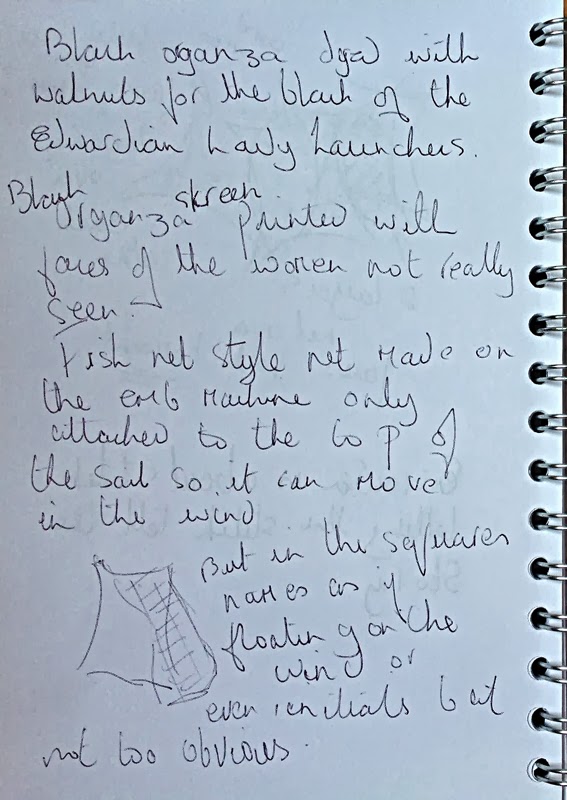 Black oganza dyed with
walnuts for the black of the
Edwardian Lady Launchers.
Black skreen
Organza printed with
faces of the women not really
seen.
Fish net style net made on
the emb machine only
attached to the top of
the sail so it can move
in the wind
But in the squares
names as if
floating on the
wind or
even initials but
not too obvious.